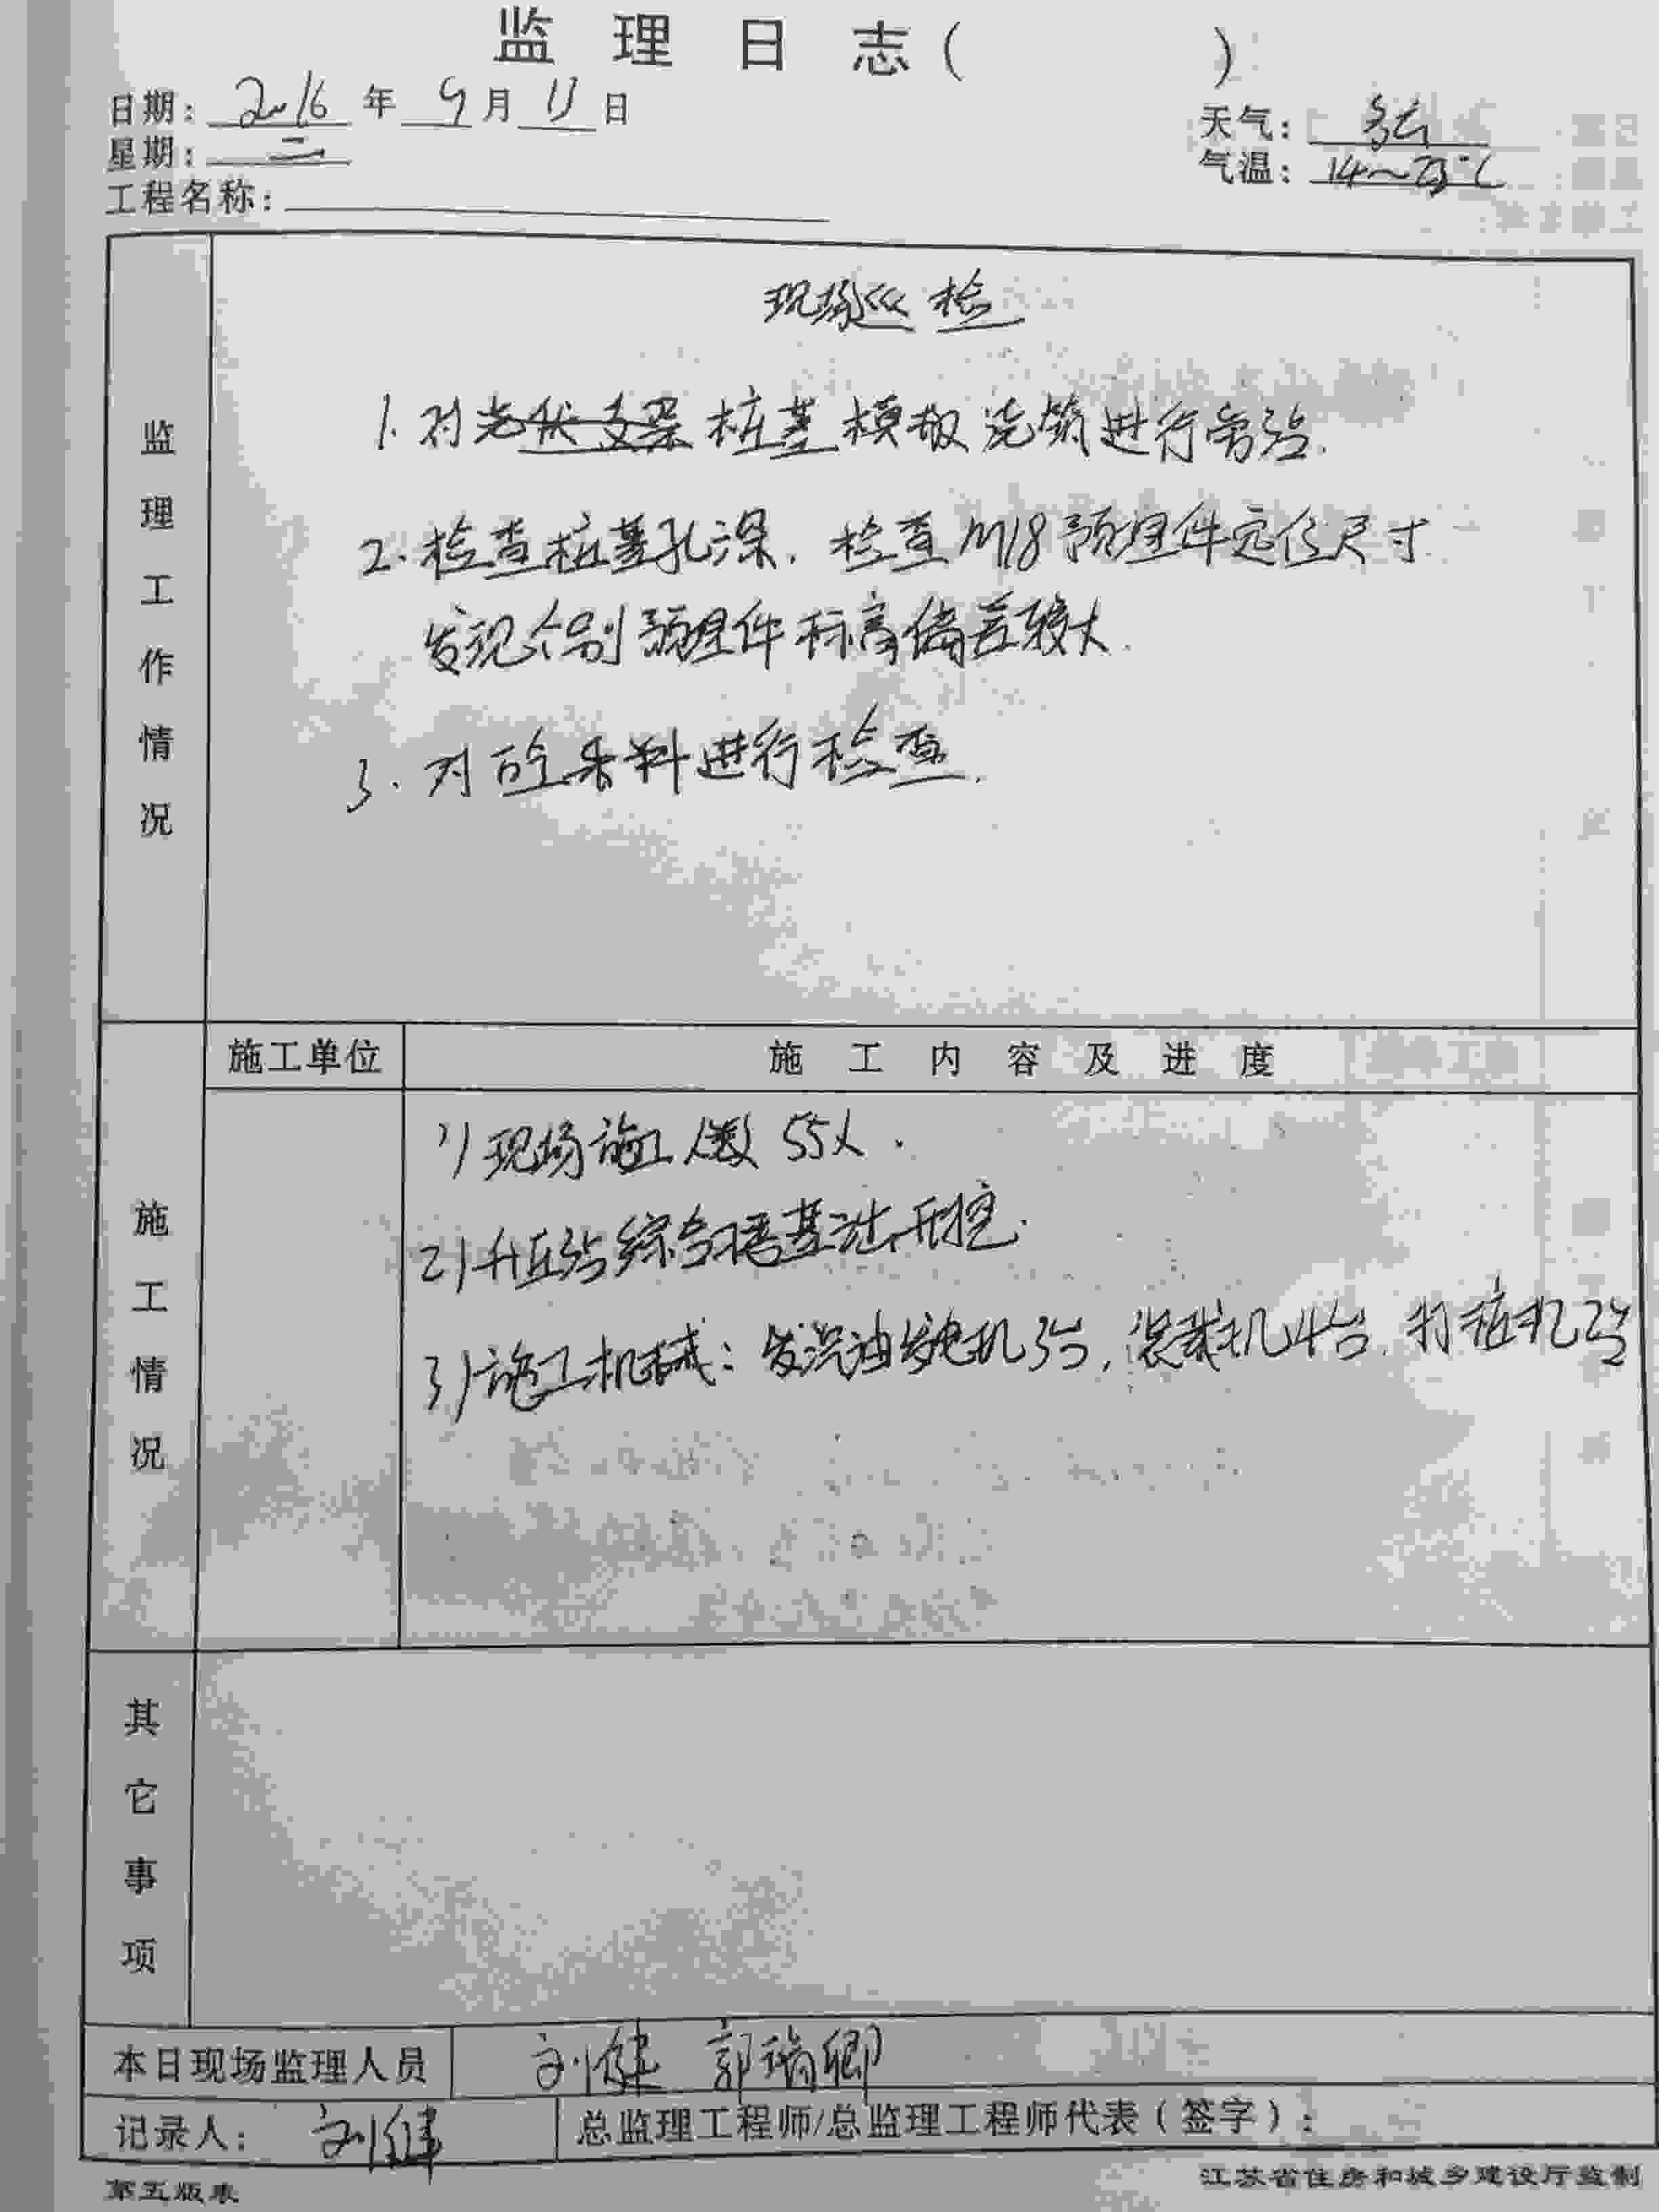 监理日志( )
日期: 2016 年 9 月 13 日
星期: 二
天气: 多云
气温: 14~23℃
工程名称:
监理工作情况
现场巡检
1. 对光伏支架桩基模板浇筑进行旁站.
2. 检查桩基孔深. 检查M18预埋件定位尺寸
发现个别预埋件标高偏差较大.
3. 对砼来料进行检查.
施工单位
施工内容及进度
施工情况
1) 现场施工人数 55人.
2) 升压站综合楼基础开挖.
3) 施工机械: 汽油发电机3台, 装载机4台, 打桩机2台
其它事项
本日现场监理人员 刘健 郭瑞卿
记录人: 刘健
总监理工程师/总监理工程师代表(签字):
第五版表
江苏省住房和城乡建设厅监制